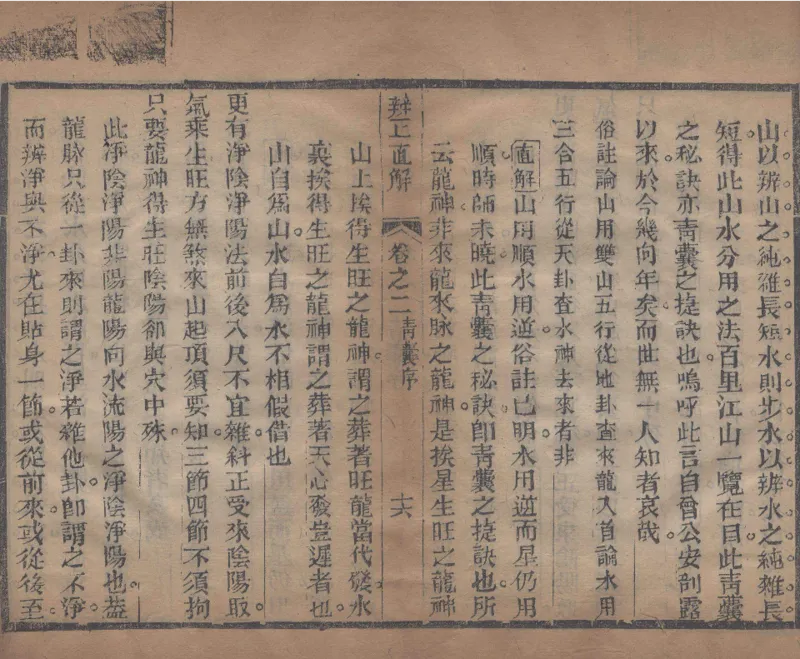 山以辨山之純雜長短水則步水以辨水之純雜長
短得此山水分用之法百里江山一覽在目此靑囊
之秘訣亦靑囊之捷訣也嗚呼此言自曾公安剖露
以來於今幾向年矣而世無一人知者哀哉
俗註論山用雙山五行從地卦查來龍入首論水用
三合五行從天卦查水神去來者非
直解山用順水用逆俗註已明水用逆而星仍用
順時師未曉此靑囊之秘訣卽靑囊之捷訣也所
云龍神非來龍來脉之龍神是挨星生旺之龍神
辨正直解 卷之二 靑囊序 十六
山上挨得生旺之龍神謂之葬著旺龍當代發水
裏挨得生旺之龍神謂之葬著天心發豈遲者也
山自爲山水自爲水不相假借也
更有淨陰淨陽法前後八尺不宜雜斜正受來陰陽取
氣乘生旺方無煞來山起頂須要知三節四節不須拘
只要龍神得生旺陰陽卻與穴中殊
此淨陰淨陽非陽龍陽向水流陽之淨陰淨陽也葢
龍脉只從一卦來則謂之淨若雜他卦卽謂之不淨
而辨淨與不淨尤在貼身一節或從前來或從後至